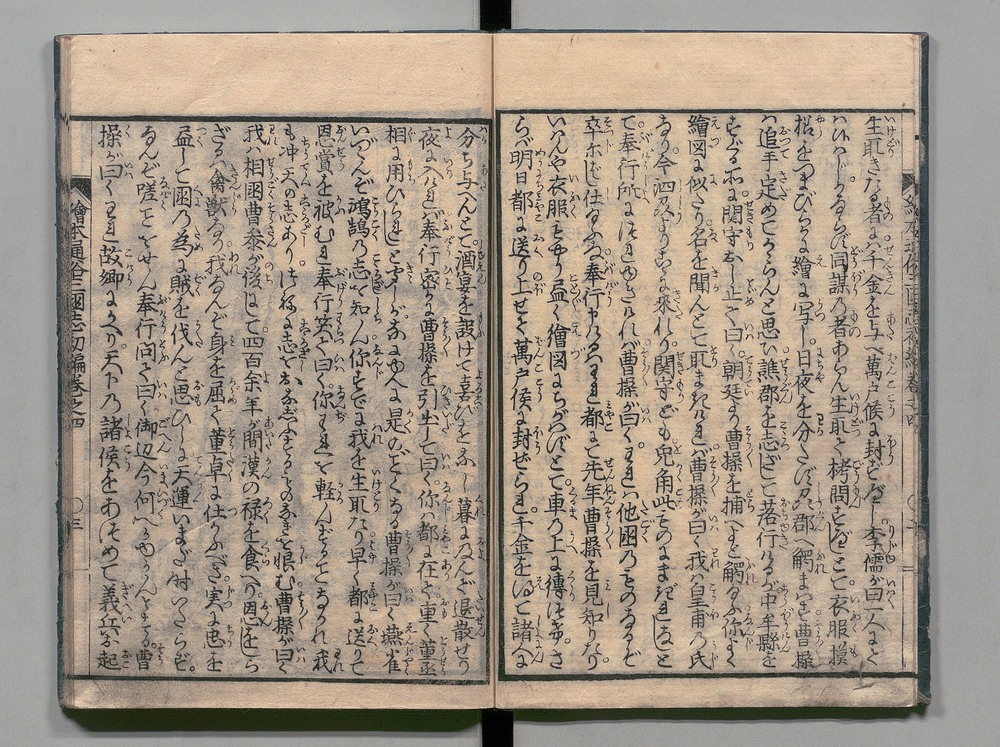 生取きたる者には千金を与へ萬戸侯に封ずべし李儒が曰一人にて
はいかじかならず同謀の者あらん生取て拷問すべしとて衣服摸
様をつまびらかに繪に写し日夜を分たず郡へ觸まはす曹操
は追手定めてかゝらんと思ひ譙郡を志ざして落行けるが中牟縣を
すぐる所に関守おし止て曰く朝廷より曹操を捕へよと觸らる你よく
繪図に似たり名を聞んとて取まきければ曹操が曰く我は皇甫の氏
なり今泗よりこゝに来れり関守ども兎角此ものにまぎれなしと
て奉行所につれゆきければ曹操が曰くわれは他国のものなるぞ
卒尓し仕るな奉行中われ都にて先年曹操を見知りたり
いはんや衣服もやう益く繪図にちがはずとて車の上に縛つけさ
らば明日都に送り上せて萬戸侯に封ぜられ千金をば諸人に
分ち与へんとて酒宴を設けて喜びをなし暮になんで退散せり
夜に入れば奉行密に曹操を引出して曰く你都に在て重く董丞
相に用ひられしと聞しが何ゆへに是のごとくなる曹操が曰く燕雀
いづくんぞ鴻鵠の志を知ん你すでに我を生取なり早く都に送りて
恩賞を被むれ奉行笑て曰く你われを軽んずることなかれ我
も冲天の志あり
我は相国曹参が後にして四百余年が間漢の禄を食へり恩をしら
ざるは禽獣なり我なんぞ身を屈て董卓に仕ふべき実は忠を
益して国の為に賊を伐んと思ひしに天運いまだ时いたらず
なんぞ嗟ことをせん奉行問て曰く御辺今何へかゆかんとする曹
操が曰くわれ故郷にかへり天下の諸侯をあつめて義兵を起
繪本通俗三國志初編巻之四
〇三